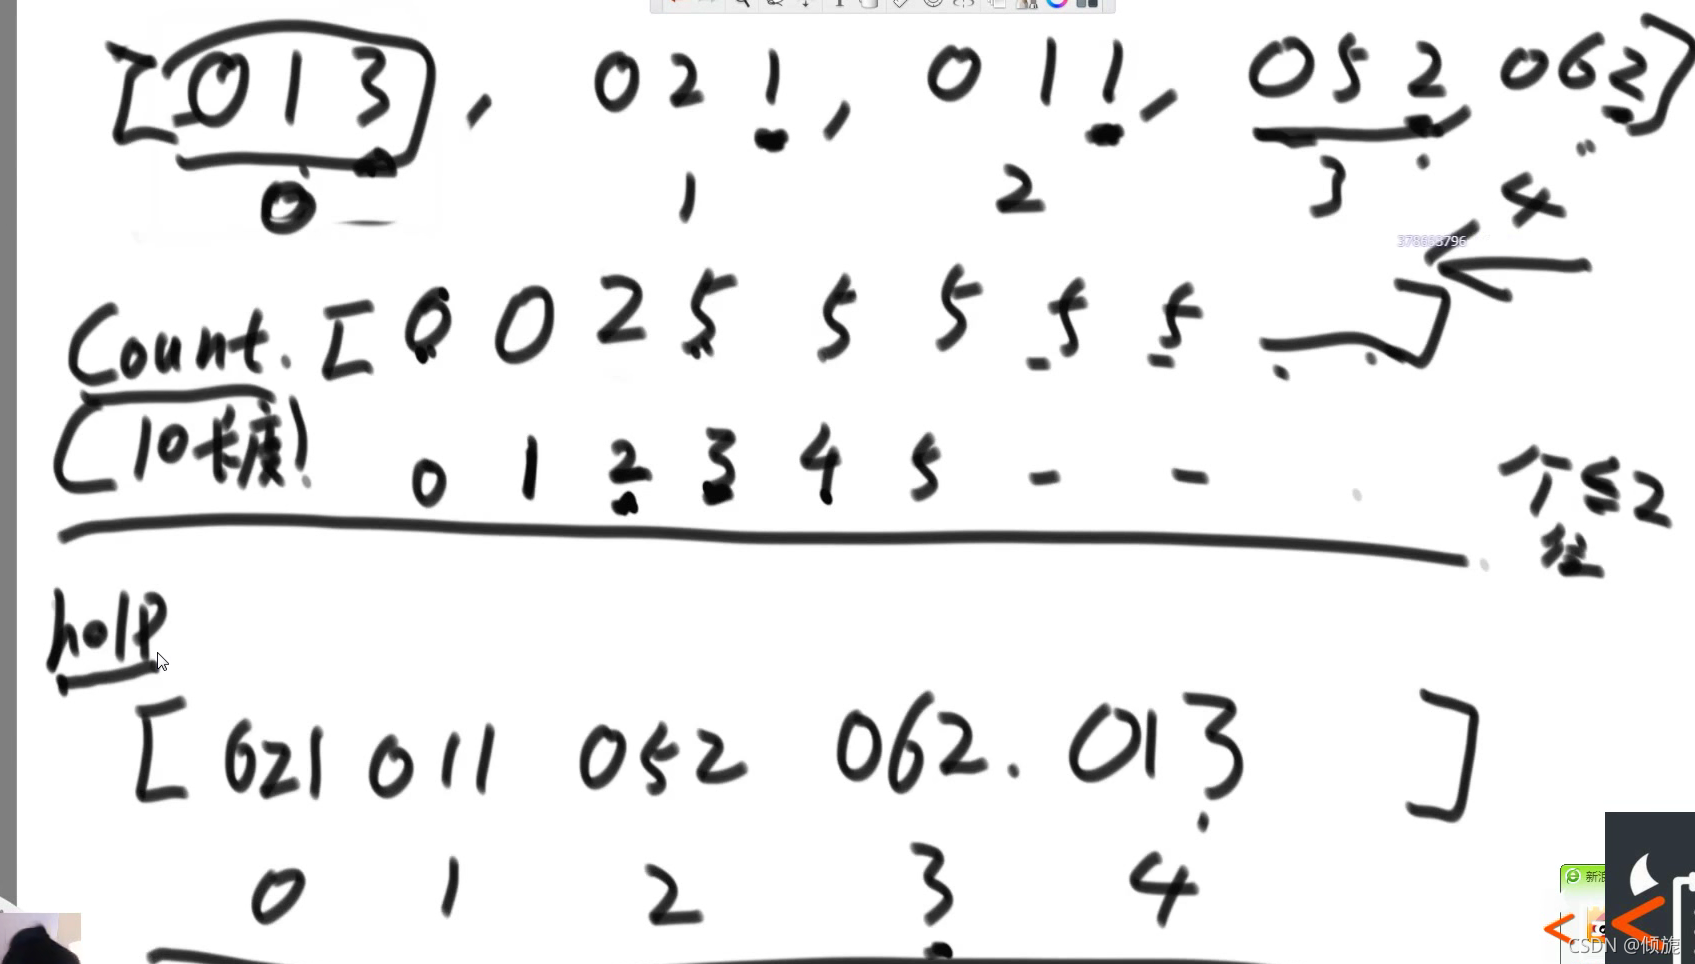 [013, 021, 011, 052, 062]
0 1 2 3 4
378663796
Count. [0 0 2 5 5 5 5 5 ]
(10长度) 0 1 2 3 4 5 - -
个≤2
help
[021 011 052 062. 013 ]
0 1 2 3 4
新浪
CSDN @倾旎